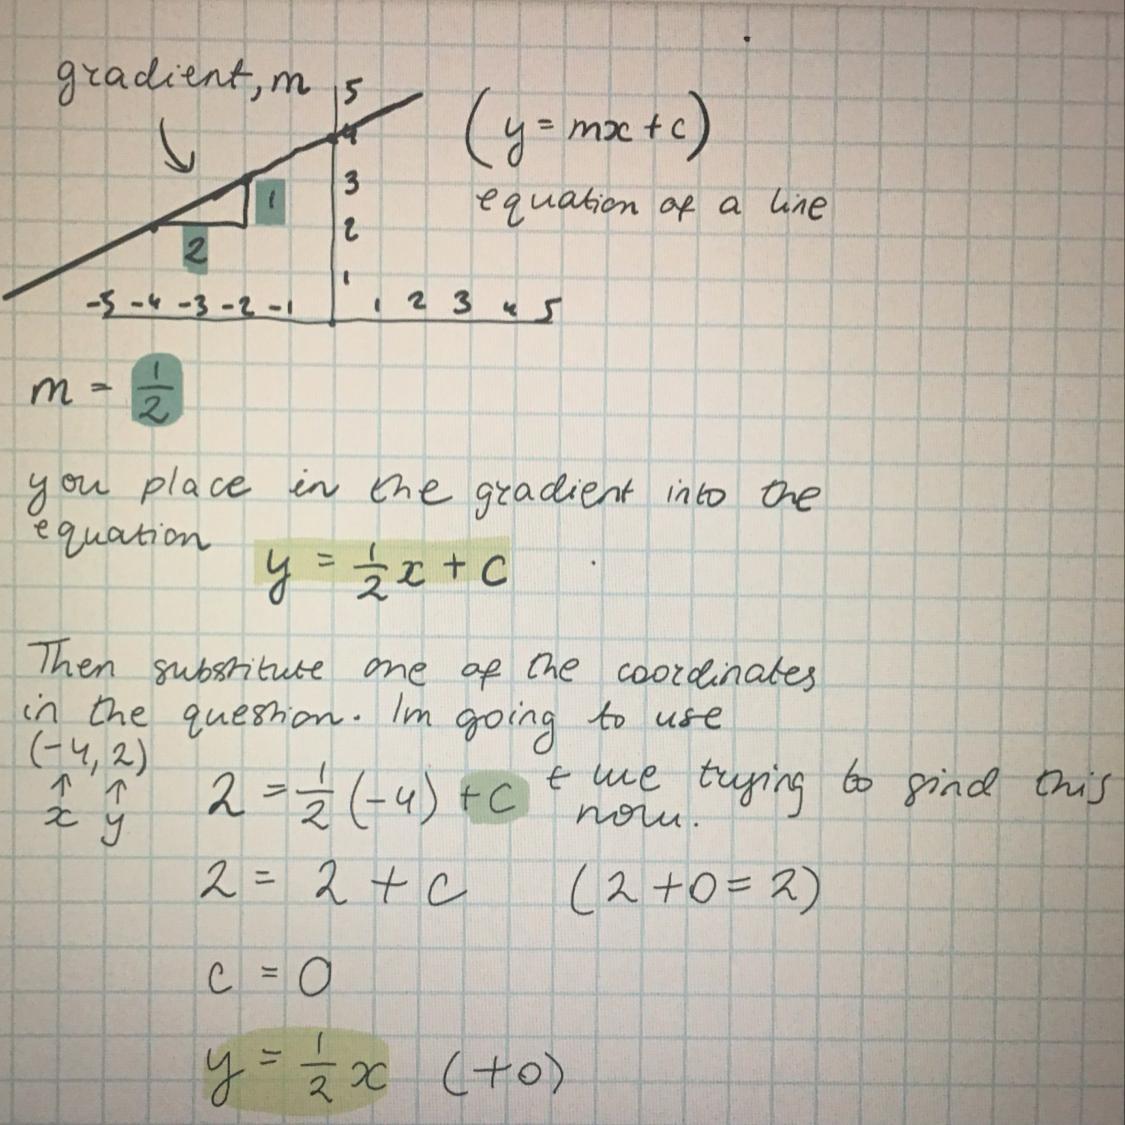 gradient, m
(y = mx + c)
equation of a line
5
4
3
2
1
1
2
-5 -4 -3 -2 -1 1 2 3 4 5
m = 1/2
you place in the gradient into the
equation
y = 1/2 x + c
Then substitute one of the coordinates
in the question. Im going to use
(-4, 2)
↑ ↑
x y
2 = 1/2 (-4) + c ← we trying to find this
now.
2 = 2 + c (2 + 0 = 2)
c = 0
y = 1/2 x (+0)